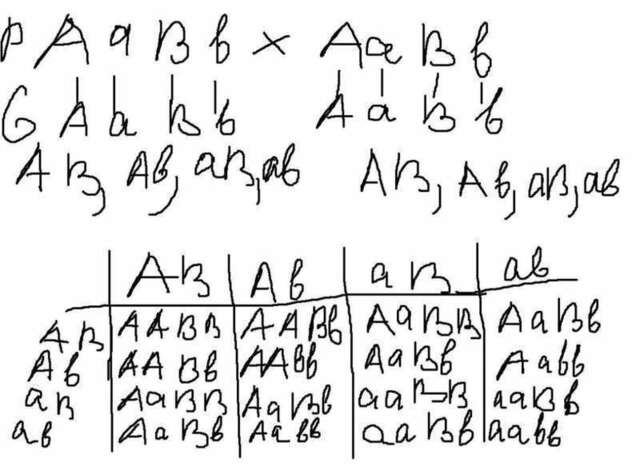 P A a B b × A a B b
G A a B b A a B b
AB, Ab, aB, ab AB, Ab, aB, ab
AB Ab aB ab
AB AABB AABb AaBB AaBb
Ab AABb AAbb AaBb Aabb
aB AaBB AaBb aaBB aaBb
ab AaBb Aabb aaBb aabb